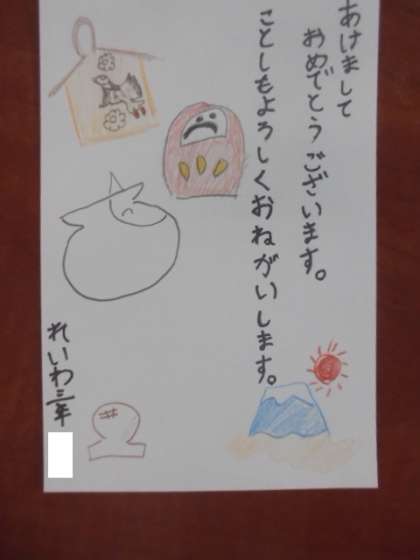 あけまして
おめでとうございます。
ことしもよろしくおねがいします。
れいわ三年